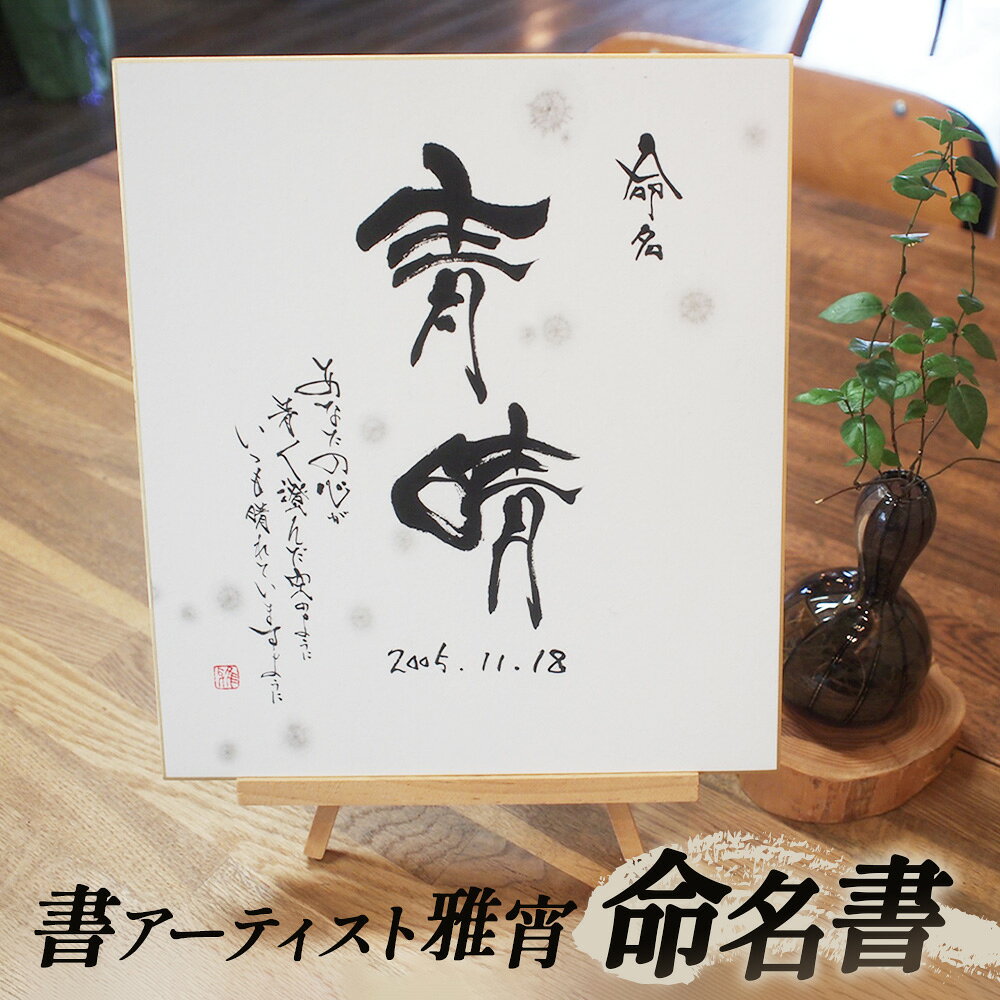 命名
青晴
あなたの心が
青く澄んだ空のように
いつも晴れていますように
2005.11.18
書アーティスト雅宵 命名書